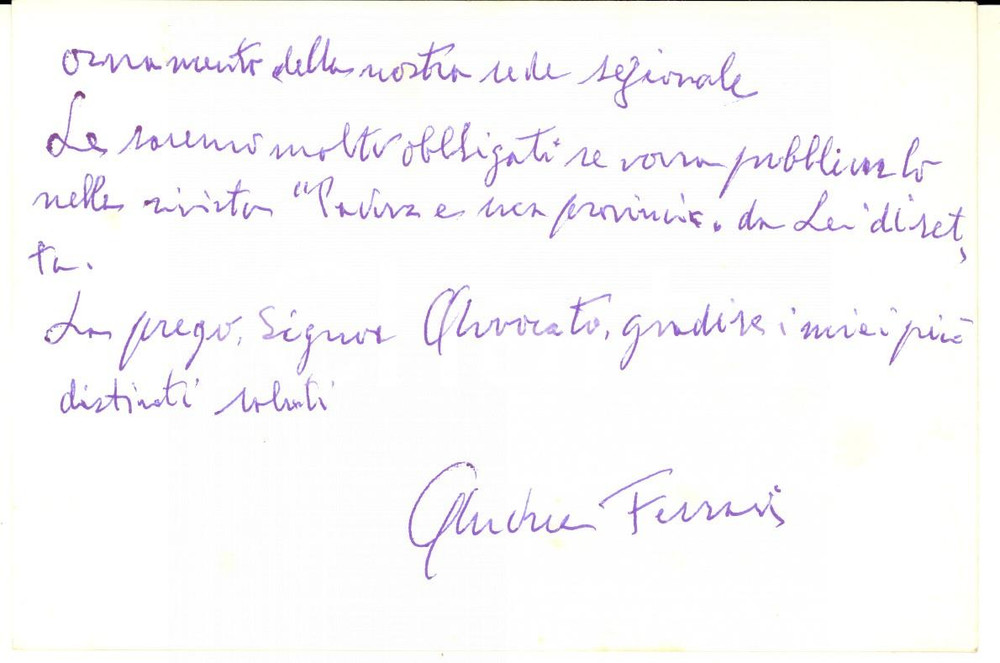 ornamento della nostra sede regionale
Le saremo molto obbligati se vorrà pubblicarlo
nella rivista "Padova e sua provincia" da Lei diret-
ta.
La prego, Signor Avvocato, gradire i miei più
distinti saluti
Andrea Ferrari